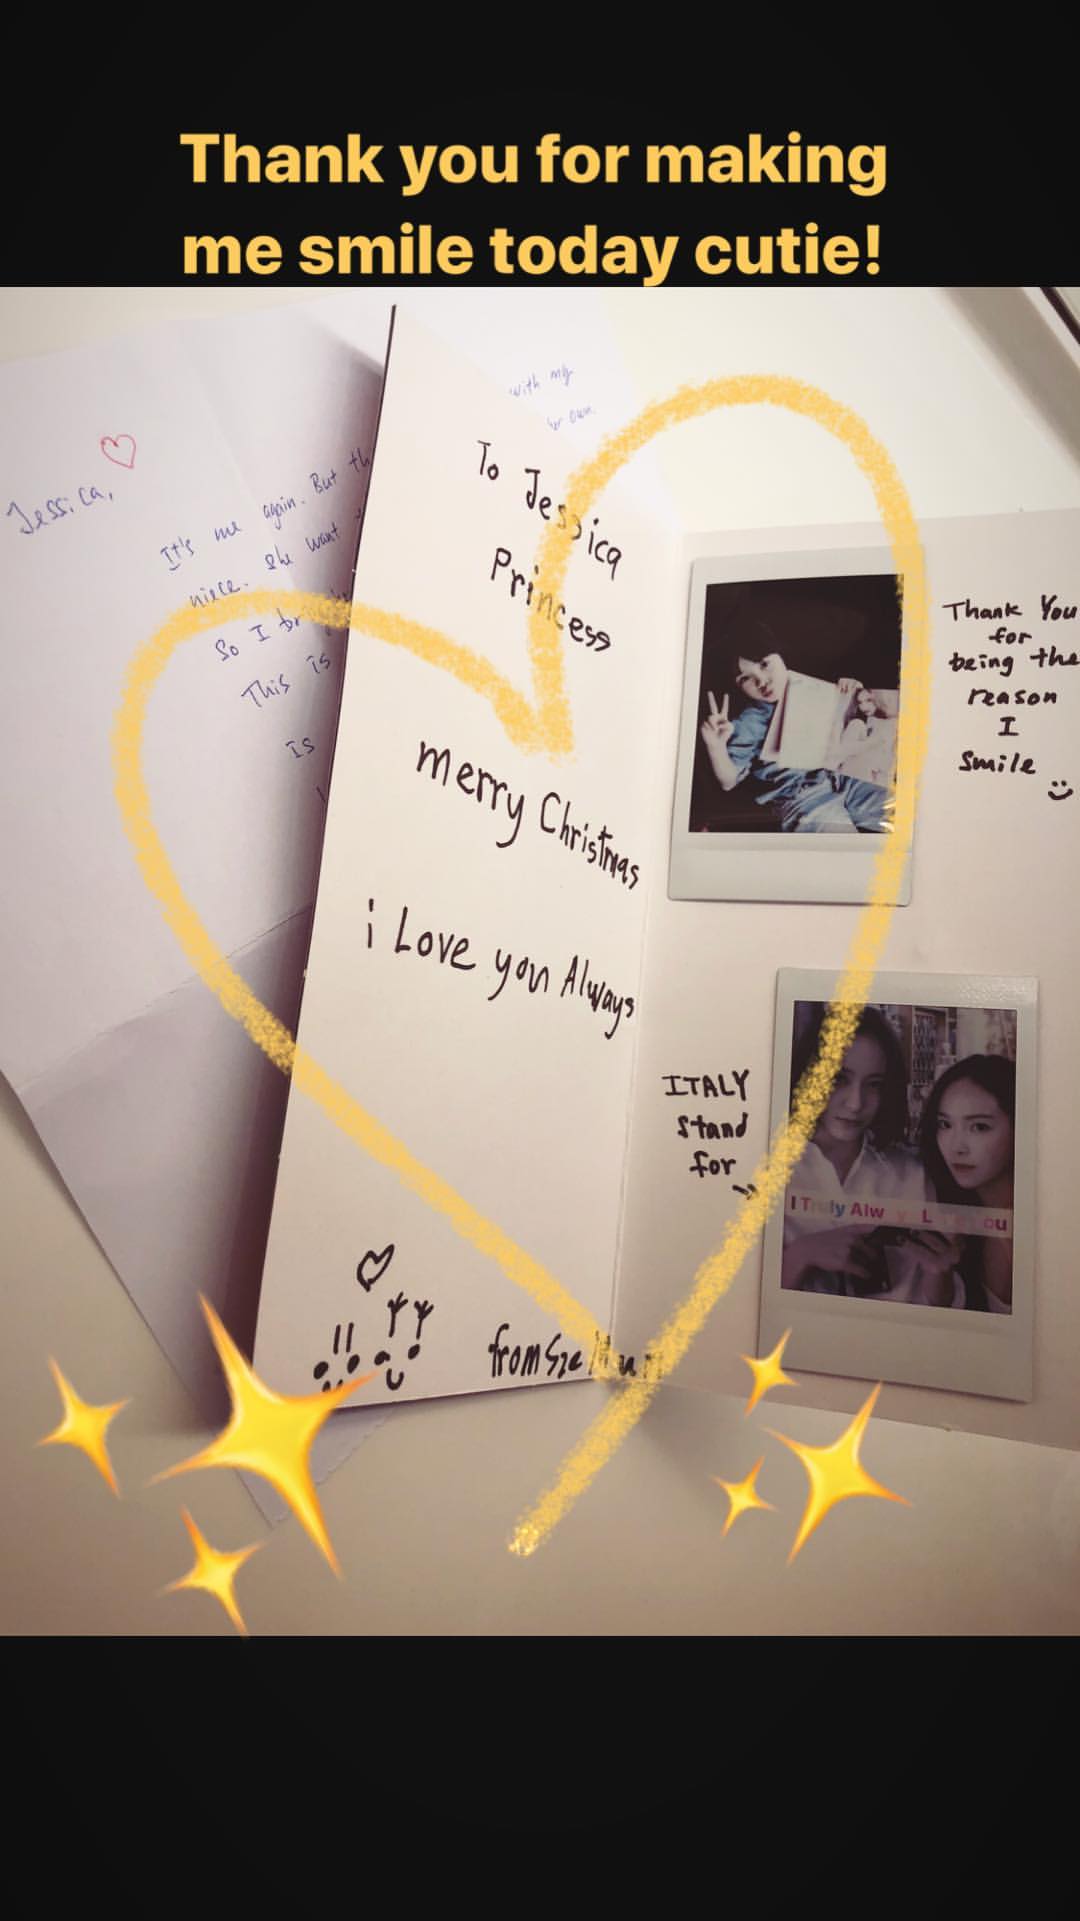 Thank you for making
me smile today cutie!
Jessica,
It's me again. But th
niece. She want
So I
This is
Is
with my
own.
To Jessica
Princess
merry Christmas
i Love you Always
from Sze
Thank You
for
being the
reason
I
Smile
ITALY
Stand
for
I Truly Alw L ou